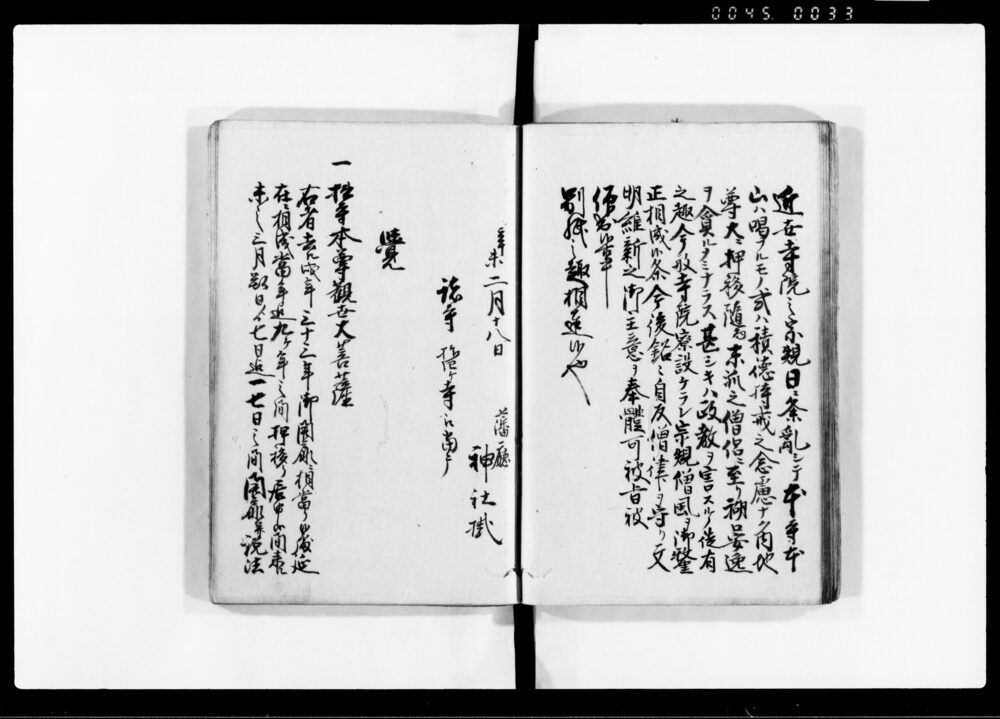 0045. 0033
近世寺院之宗規日々紊乱シテ本寺本
山ハ唱フルモノ或ハ積徳持戒之念慮ナク肉地
尊大ニ押移随而末派之僧侶至リ糊口安逸
ヲ貪ルノミナラス甚シキハ政教ヲ害スルノ徒有
之趣今般寺院寮設ケラレ宗規僧風ヲ御釐
正相成候条今後銘々自反僧律ヲ守リ文
明維新之御主意ヲ奉體可被旨被
仰出候事
別紙之趣相達候也
辛未二月十八日
藩廳
神社掛
諸寺
覺
一 拙寺本尊観世大菩薩
右者去ル戌年三十三年御開扉ニ相當リ候処延
在ニ相成當年迄九ヶ年之間押移リ居申候間當
未之三月朔日ゟ七日迄一七日之間開扉并説法